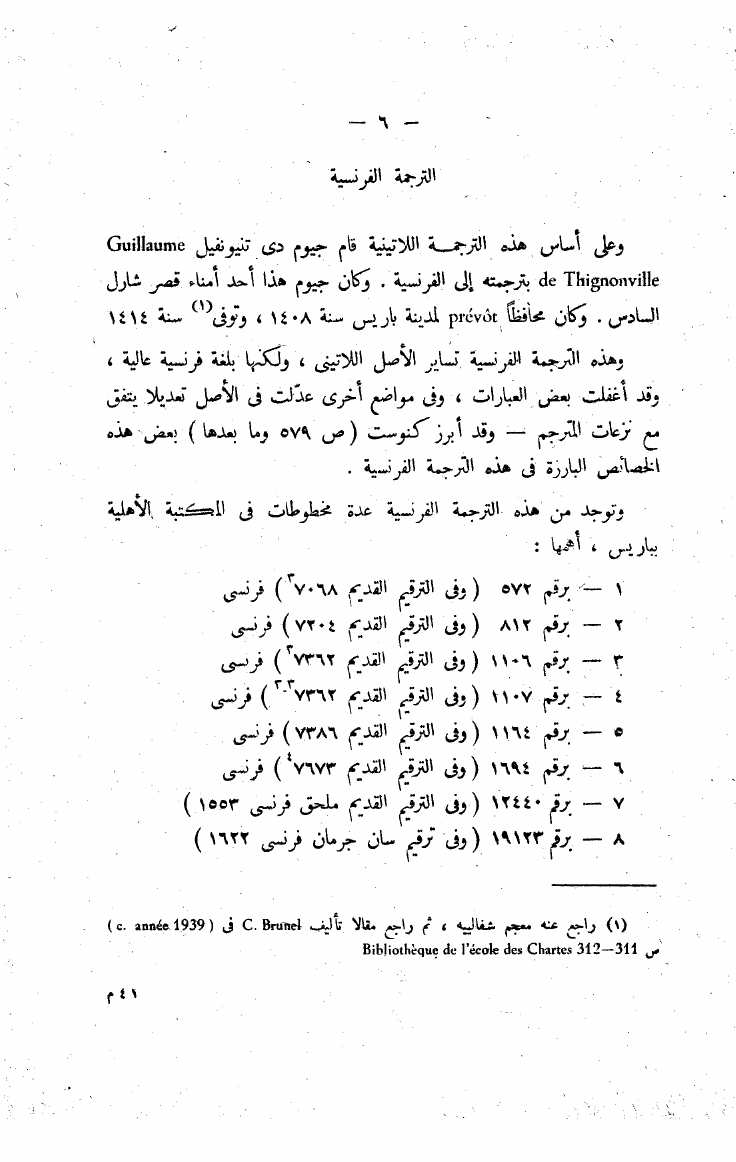 — ٦ —
الترجمة الفرنسية
وعلى أساس هذه الترجمـــة اللاتينية قام جيوم دى تنيونفيل Guillaume
de Thignonville بترجمته إلى الفرنسية . وكان جيوم هذا أحد أمناء قصر شارل
السادس . وكان محافظاً prévôt لمدينة باريس سنة ١٤٠٨ ، وتوفى(١) سنة ١٤١٤
وهذه الترجمة الفرنسية تساير الأصل اللاتينى ، ولكنها بلغة فرنسية عالية ،
وقد أغفلت بعض العبارات ، وفى مواضع أخرى عدّلت فى الأصل تعديلا يتفق
مع نزعات المترجم — وقد أبرز كنوست ( ص ٥٧٩ وما بعدها ) بعض هذه
الخصائص البارزة فى هذه الترجمة الفرنسية .
وتوجد من هذه الترجمة الفرنسية عدة مخطوطات فى المكتبة الأهلية
بباريس ، أهمها :
١ — برقم ٥٧٢ ( وفى الترقيم القديم ٧٠٦٨٣ ) فرنسى
٢ — برقم ٨١٢ ( وفى الترقيم القديم ٧٢٠٤ ) فرنسى
٣ — برقم ١١٠٦ ( وفى الترقيم القديم ٧٣٦٢٣ ) فرنسى
٤ — برقم ١١٠٧ ( وفى الترقيم القديم ٧٣٦٢٣-٣ ) فرنسى
٥ — برقم ١١٦٤ ( وفى الترقيم القديم ٧٣٨٦ ) فرنسى
٦ — برقم ١٦٩٤ ( وفى الترقيم القديم ٧٦٧٣٤ ) فرنسى
٧ — برقم ١٢٤٤٠ ( وفى الترقيم القديم ملحق فرنسى ١٥٥٣ )
٨ — برقم ١٩١٢٣ ( وفى ترقيم سان جرمان فرنسى ١٦٢٢ )
(١) راجع عنه معجم شفالييه ، ثم راجع مقالا تأليف C. Brunel فى ( c. année 1939 )
Bibliothèque de l'école des Chartes 312—311 ص
٤١ م